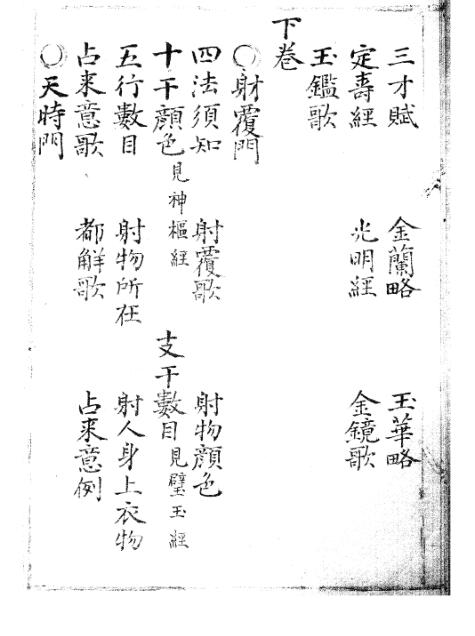 三才賦 金蘭略 玉華略
定壽經 光明經 金鏡歌
玉鑑歌
下卷
○射覆門
四法須知 射覆歌 射物顔色
十干顔色見神樞經 支干數目見璧玉經
五行數目 射物所在 射人身上衣物
占來意歌 都解歌 占來意例
○天時門